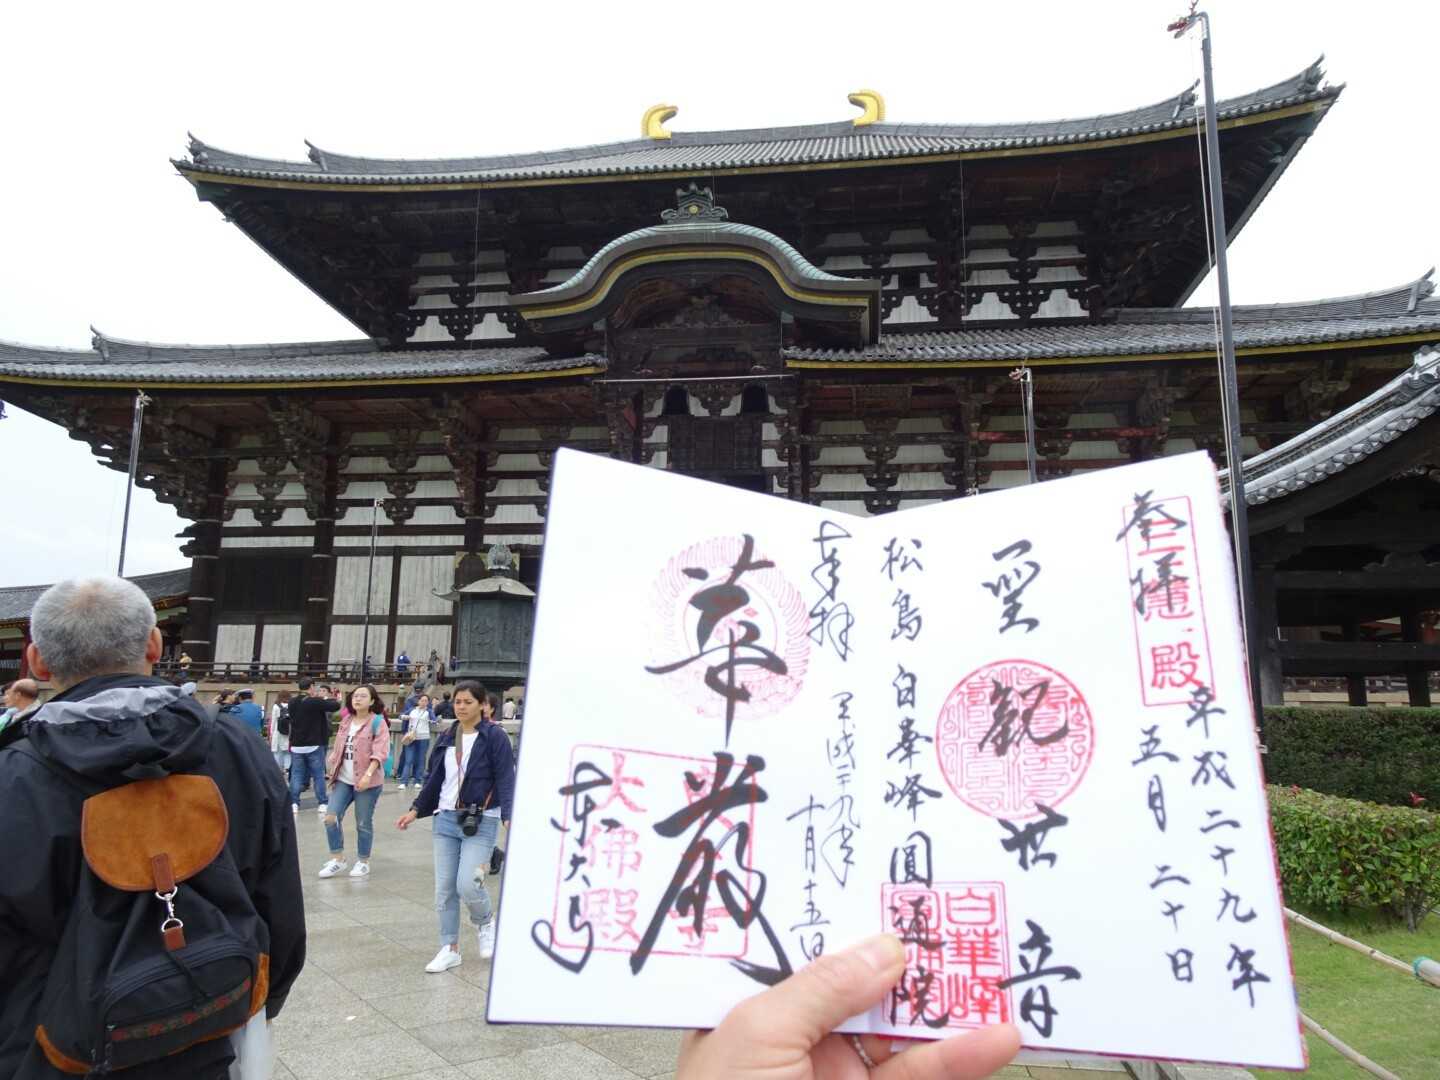 奉拝
三慧殿
平成二十九年
五月二十日
聖観世音
松島 白華峰 圓通院
白華峰
圓通院
奉拝 平成二十九年
十月十五日
華厳
東大寺
大佛殿